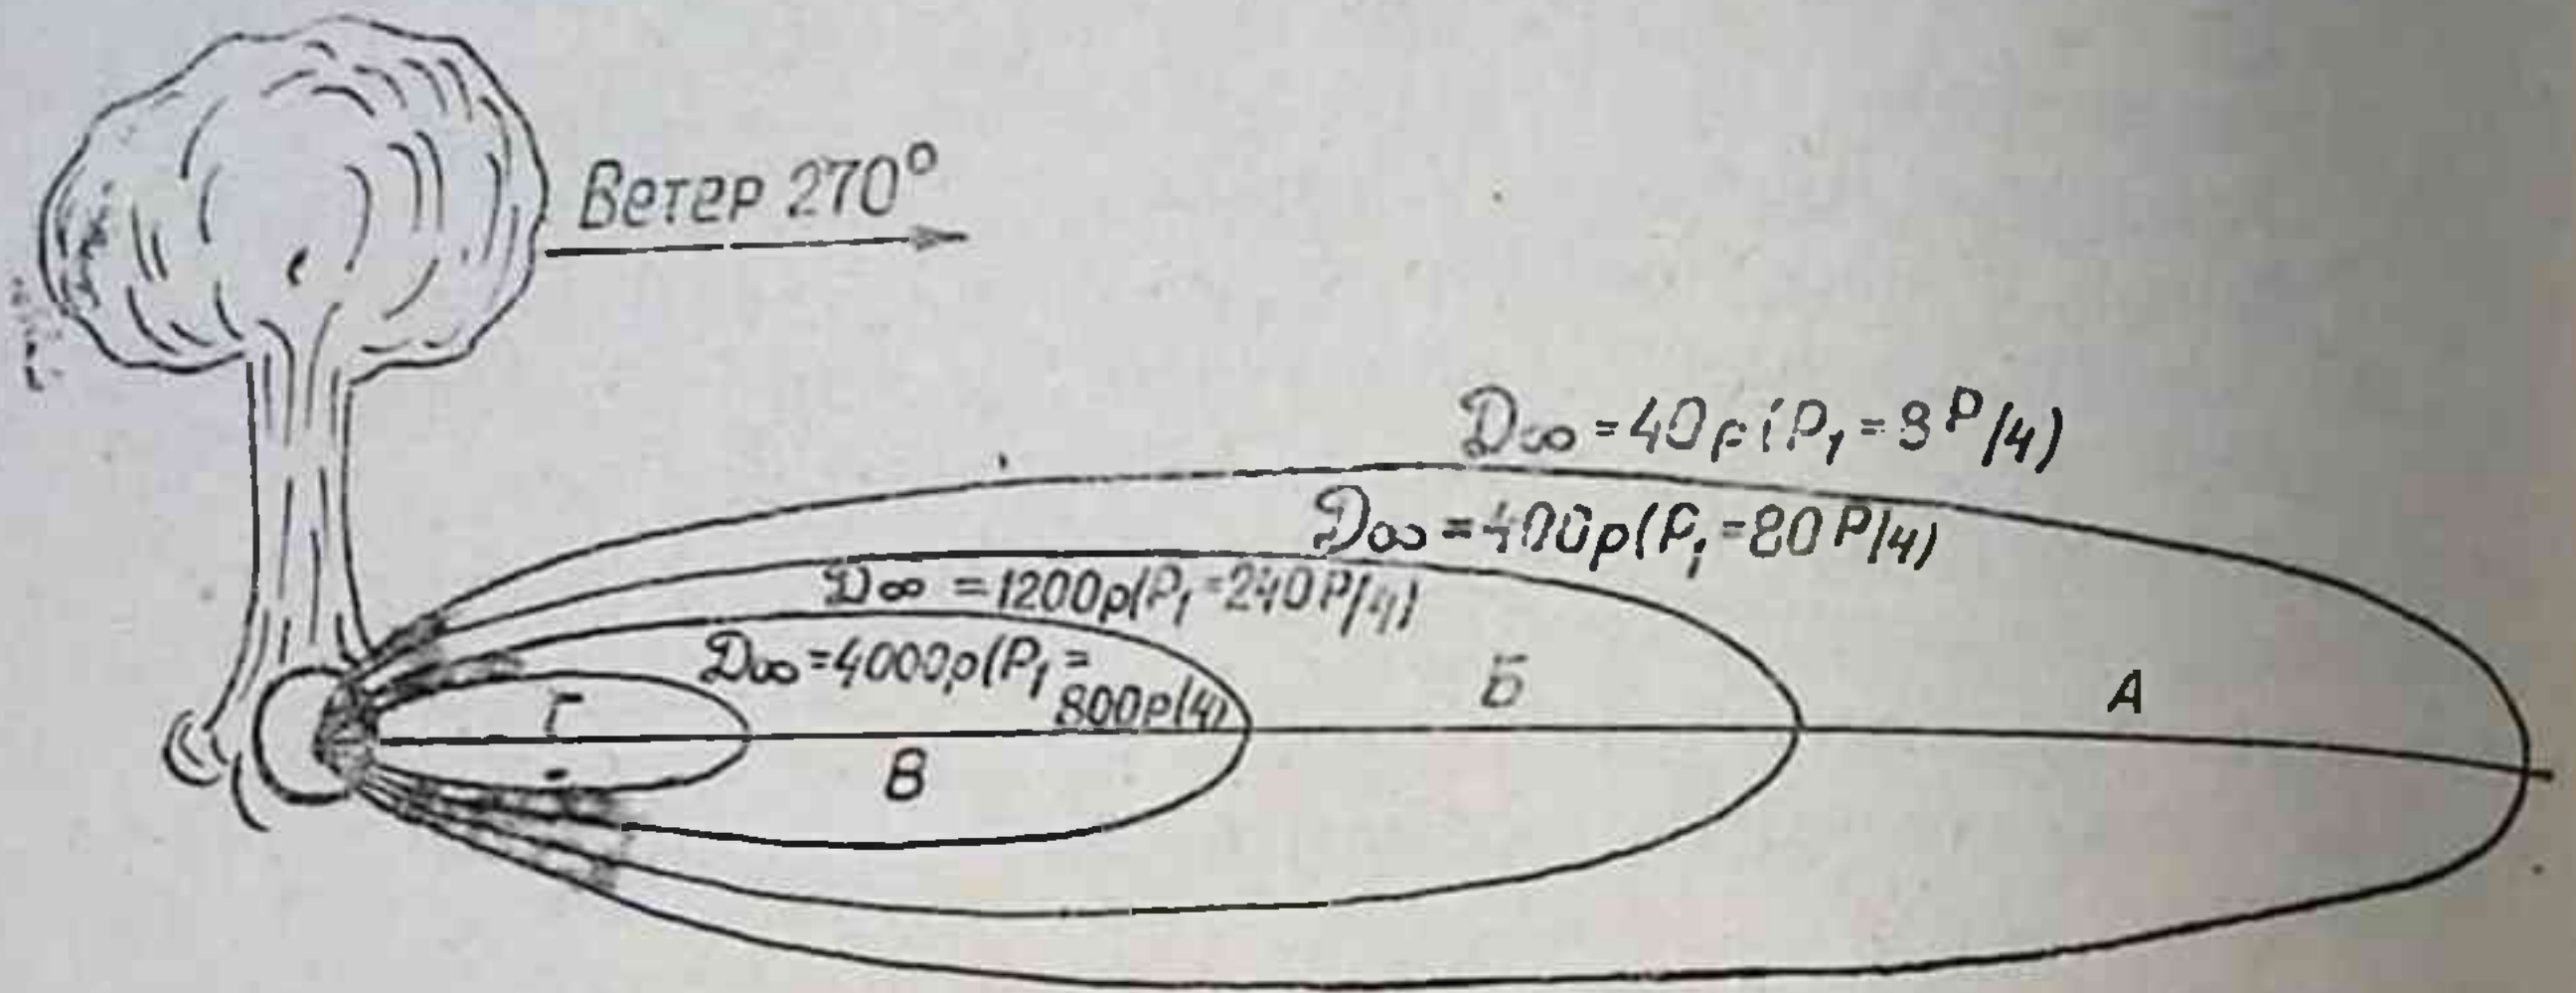 Ветер 270°
Д∞ = 40р (P₁ = 8 Р/ч)
Д∞ = 400р (P₁ = 80 Р/ч)
Д∞ = 1200р (P₁ = 240 Р/ч)
Д∞ = 4000р (P₁ =
800р/ч)
Г
В
Б
А